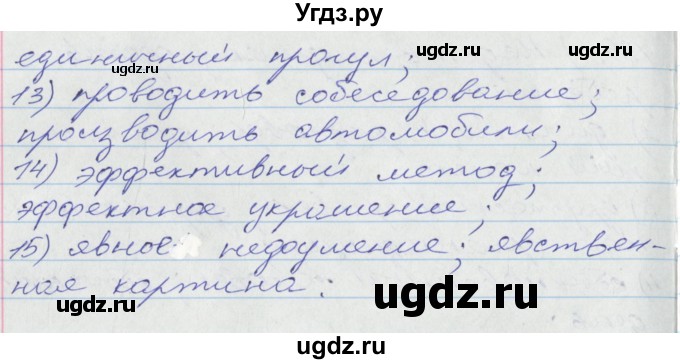 Угдз.ру
единичный прогул;
ugdz.ru ugdz.ru
13) проводить собеседование;
производить автомобили;
ugdz.ru ugdz.ru
14) эффективный метод;
эффектное украшение;
ugdz.ru ugdz.ru
15) явное недоумение; явствен-
ная картина.
ugdz.ru
ugdz.ru